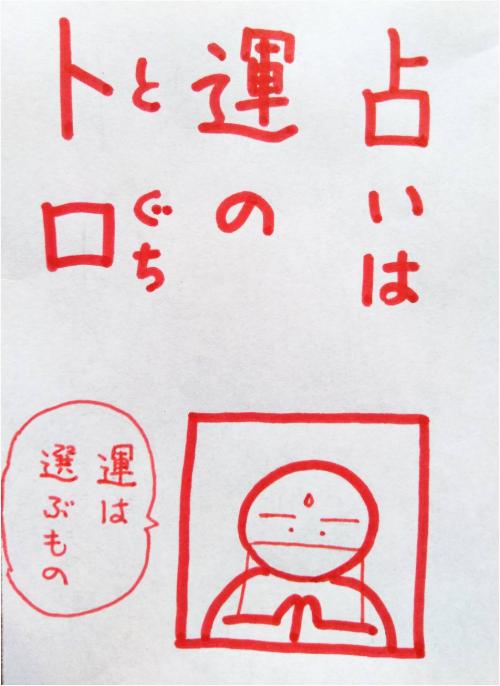 占いは
運の
ト口
とぐち
運は
選ぶもの